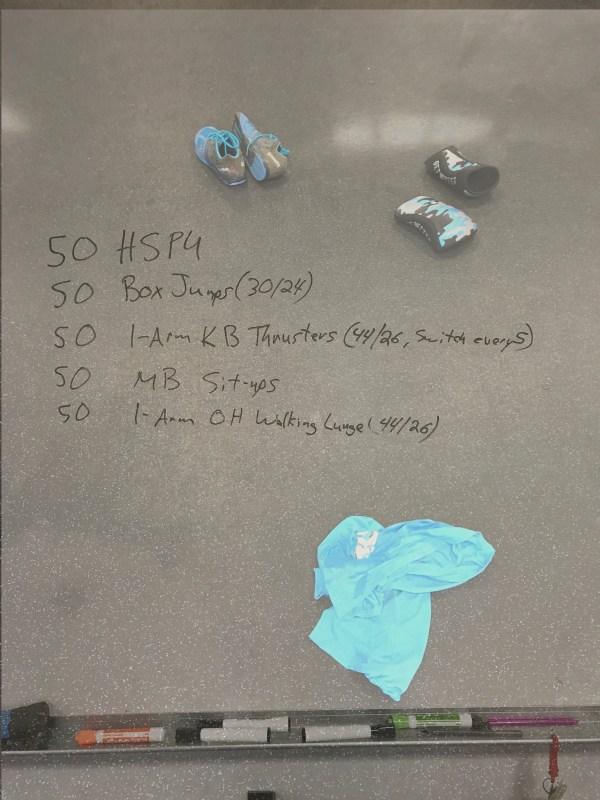 50 HSPU
50 Box Jumps (30/24)
50 1-Arm KB Thrusters (44/26, Switch every 5)
50 MB Sit-ups
50 1-Arm OH Walking Lunge (44/26)